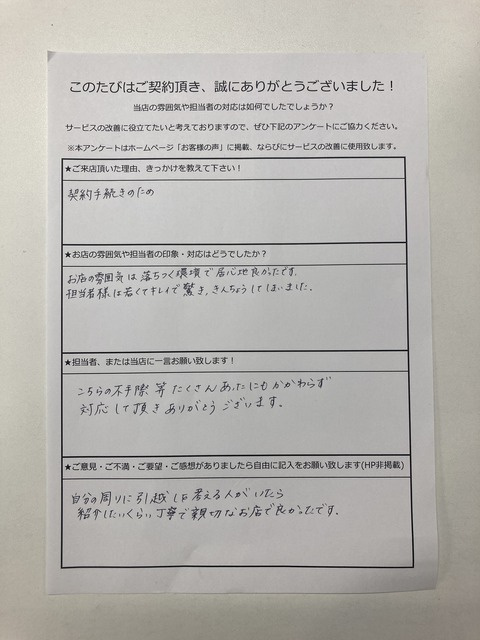 このたびはご契約頂き、誠にありがとうございました！
当店の雰囲気や担当者の対応は如何でしたでしょうか？
サービスの改善に役立てたいと考えておりますので、ぜひ下記のアンケートにご協力ください。
※本アンケートはホームページ「お客様の声」に掲載、ならびにサービスの改善に使用致します。
★ご来店頂いた理由、きっかけを教えて下さい！
契約手続きのため
★お店の雰囲気や担当者の印象・対応はどうでしたか？
お店の雰囲気は落ちつく環境で居心地良かったです。
担当者様は若くてキレイで驚き、きんちょうしてしまいました。
★担当者、または当店に一言お願い致します！
こちらの不手際等たくさんあったにもかかわらず
対応して頂きありがとうございます。
★ご意見・ご不満・ご要望・ご感想がありましたら自由に記入をお願い致します(HP非掲載)
自分の周りに引越し考える人がいたら
紹介したいくらい丁寧で親切なお店で良かったです。